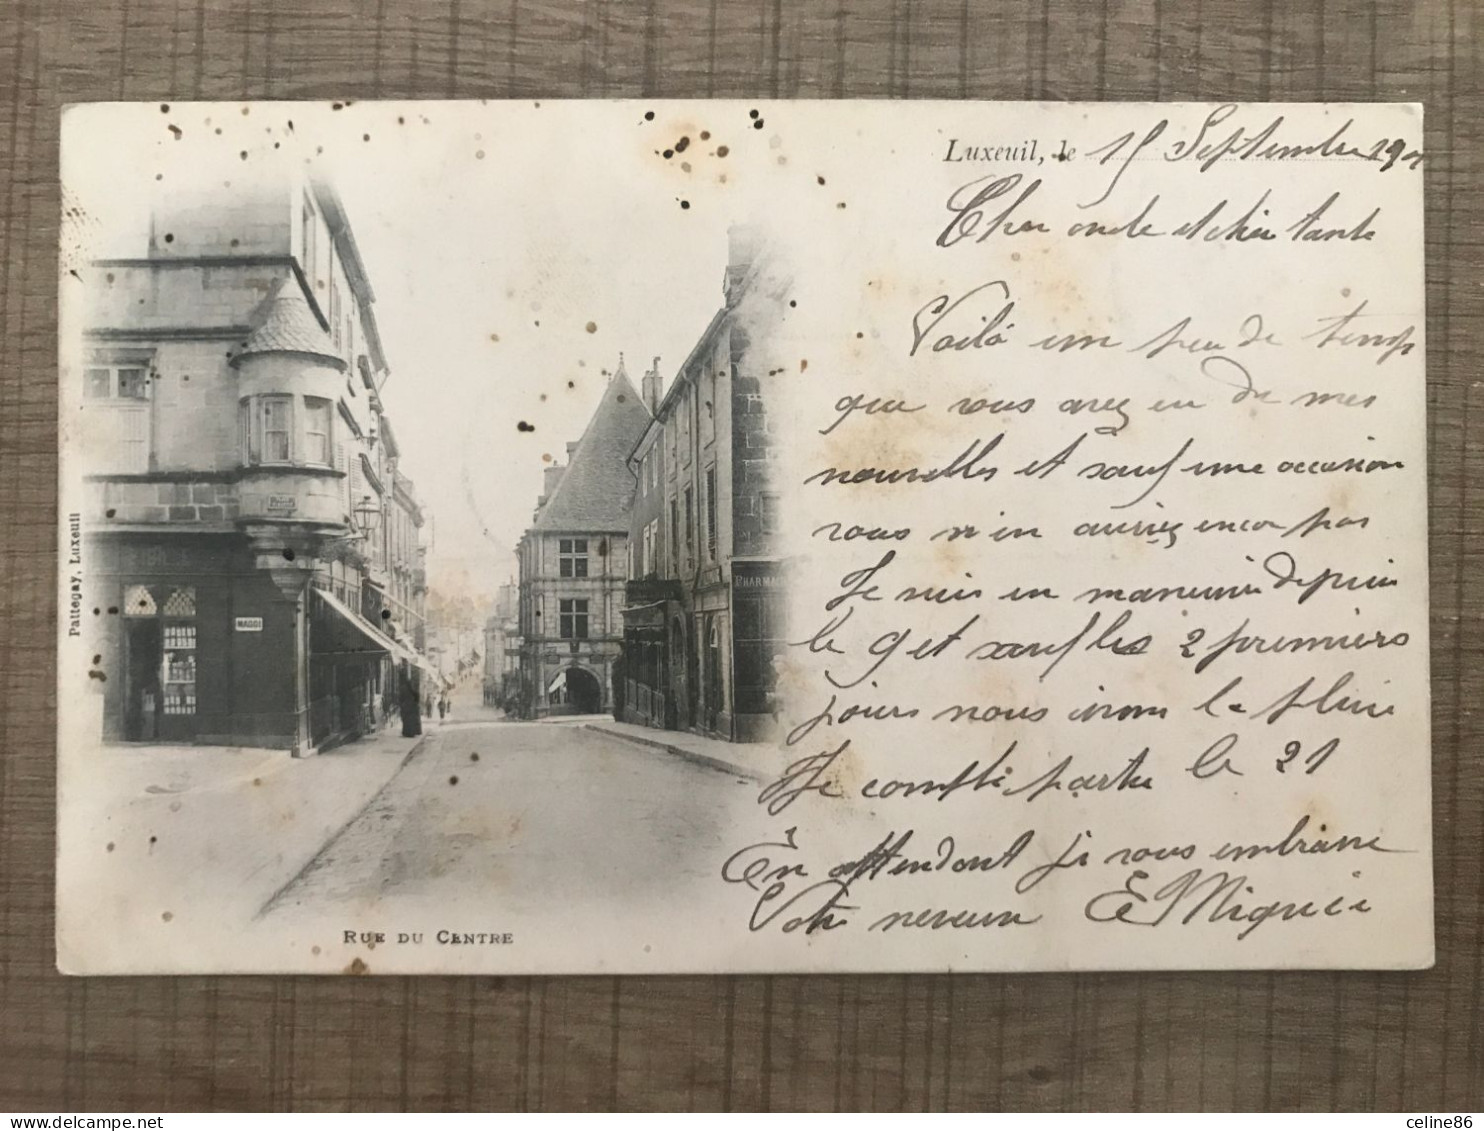 Luxeuil, le 15 Septembre 190
Cher oncle et chère tante
Voilà un peu de temps
que vous avez eu de mes
nouvelles et sauf une occasion
vous n'en auriez encor pas
Je suis en manœuvre depuis
le 9 et sauf les 2 premiers
jours nous avons la pluie
Je compte partir le 21
En attendant je vous embrasse
Votre neveux E Mignie
Pattegay, Luxeuil
MAGGI
PHARMACIE
RUE DU CENTRE
celine86
delcampe.net